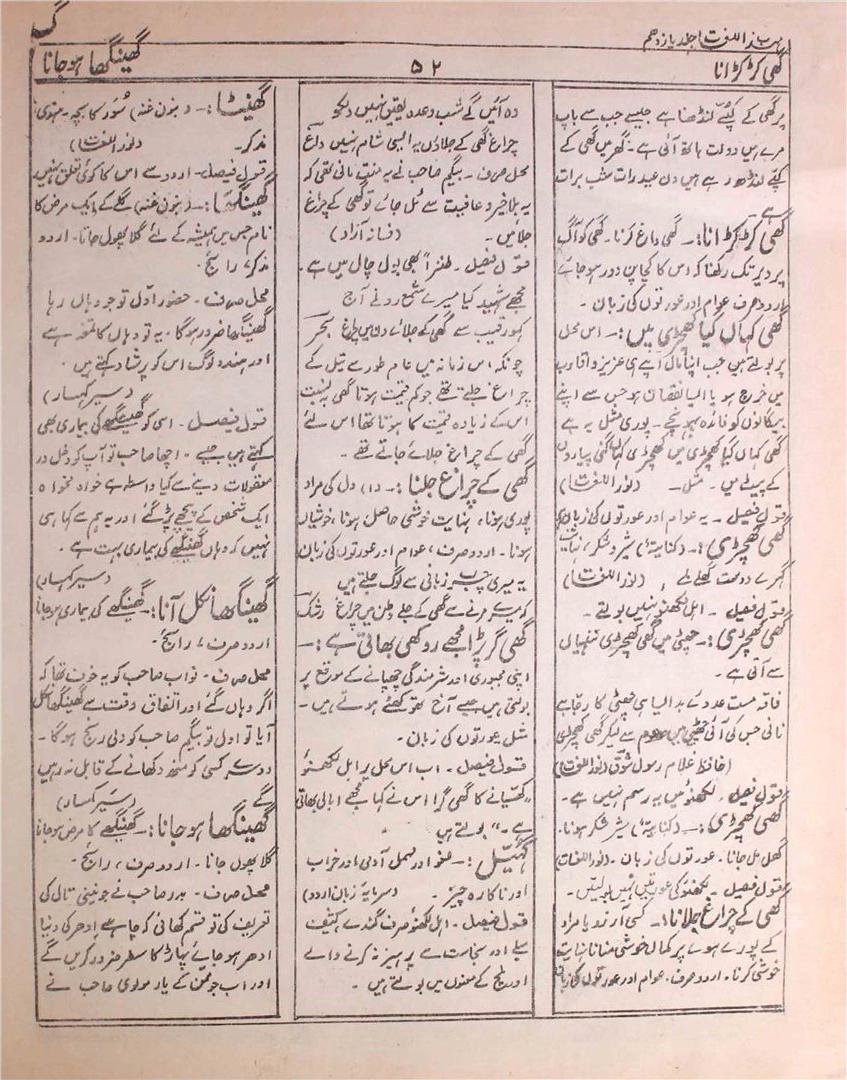 گ
مہذب اللغت (جلد یازدہم
گھی کڑکڑانا
۵۲
گھینگھا ہو جانا
پر گھی کے کپے لنڈھنا ہے جیسے جب سے باپ
مرے ہیں دولت ہاتھ آئی ہے۔ گھر میں گھی کے
کپے لنڈھ رہے ہیں دن عید رات شب برات
ہے۔
گھی کڑکڑانا:۔ گھی داغ کرنا۔ گھی کو آگ
پر دیر تک رکھنا کہ اس کا کچا پن دور ہو جائے
اردو صرف عوام اور عورتوں کی زبان۔
گھی کہاں گیا کھچڑی میں:۔ اس محل
پر بولتے ہیں جب اپنا مال اپنے ہی عزیز و اقارب
میں خرچ ہو یا ایسا نقصان ہو جس سے اپنے
بیگانوں کو فائدہ پہونچے۔ پوری مثل یہ ہے
گھی کہاں گیا کھچڑی میں کھچڑی کہاں گئی پیاروں
کے پیٹ میں۔ مثل۔ (نور اللغت)
قول فیصل۔ یہ عوام اور عورتوں کی زبان ہے
گھی کھچڑی:۔ (کنایۃً) شیر و شکر، نہایت
گہرے دوست گھلے ملے (نور اللغت)
قول فیصل۔ اہل لکھنؤ نہیں بولتے۔
گھی کھچڑی:۔ چھٹی میں گھی کھچڑی ننہیال
سے آتی ہے۔
فاقہ مست عدو کے ہر ایسا ہی چھٹی کا رتبا ہے
نانی جس کی آئی چھٹی میں دھوم سے لیکر گھی کھچڑی
(حافظ غلام رسول شوق (نور اللغت)
قول فیصل۔ لکھنؤ میں یہ رسم نہیں ہے۔
گھی کھچڑی:۔ (کنایۃً) شیر شکر ہونا۔
گھل مل جانا۔ عورتوں کی زبان۔ (نور اللغات)
قول فیصل۔ لکھنؤ کی عورتیں نہیں بولتیں۔
گھی کے چراغ جلانا:۔ کسی آرزو یا مراد
کے پورے ہونے پر کمال خوشی منانا نہایت
خوشی کرنا۔ اردو صرف۔ عوام اور عورتوں کی زبان
وہ آئیں گے شب وعدہ یقین نہیں دلکو
چراغ گھی کے جلاؤں یہ ایسی شام نہیں داغ
محل صرف۔ بیگم صاحب نے یہ منت مانی تھی کہ
یہ بلا خیر و عافیت سے ٹل جائے تو گھی کے چراغ
جلائیں۔ (فسانہ آزاد)
قول فیصل۔ طنزاً بھی بول چال میں ہے۔
مجھے شہید کیا میرے شمع رو نے آج
کہو رقیب سے گھی کے جلائے دن میں چراغ بحر
چونکہ اس زمانہ میں عام طور سے تیل کے
چراغ جلتے تھے جو کم قیمت ہوتا گھی بنسبت
اس کے زیادہ قیمت کا ہوتا تھا اس لئے
گھی کے چراغ جلائے جاتے تھے۔
گھی کے چراغ جلنا:۔ (۱) دل کی مراد
پوری ہونا، نہایت خوشی حاصل ہونا، خوشیاں
ہونا۔ اردو صرف، عوام اور عورتوں کی زبان
یہ میری چرب زبانی سے لوگ جلتے ہیں
کہ میرے مرنے سے گھی کے جلے وطن میں چراغ رشک
گھی گر پڑا مجھے روکھی بھاتی ہے:۔
اپنی مجبوری اور شرمندگی چھپانے کے موقع پر
بولتی ہیں جیسے آخ تھو کھٹے ہوتے ہیں۔
مثل عورتوں کی زبان۔
قول فیصل۔ اب اس محل پر اہل لکھنؤ
"کھسیانے کا گھی گرا اس نے کہا مجھے ابالی بھاتی
ہے۔" بولتے ہیں
گھیّل:۔ لغو اور مہمل آدمی اور خراب
اور ناکارہ چیز۔ (سرمایہ زبان اردو)
قول فیصل۔ اہل لکھنؤ صرف گندے کثیف
میلے اور نجاست سے پرہیز نہ کرنے والے
اور لیچ کے معنوں میں بولتے ہیں۔
گھینٹا:۔ (بنون غنہ) سُور کا بچہ۔ ہندی،
مذکر۔ (نور اللغت)
قول فیصل۔ اردو سے اس کا کوئی تعلق نہیں
گھینگھا:۔ (بنون غنہ) گلے کے ایک مرض کا
نام جس میں ہمیشہ کے لئے گلا پھول جاتا۔ اردو
مذکر، رائج۔
محل صرف۔ حضور اول تو جو وہاں رہا
گھینگھا ضرور ہوگا۔ یہ تو وہاں کا تمغہ ہے
اور ہندو لوگ اس کو پرشاد کہتے ہیں۔
(سیر کہسار)
قول فیصل۔ اسی کو گھینگھے کی بیماری بھی
کہتے ہیں جیسے۔ اچھا صاحب تو آپ کو دخل در
معقولات دینے سے کیا واسطہ ہے خواہ مخواہ
ایک شخص کے پیچھے پڑ گئے اور یہ ہم سے کہا ہی
نہیں کہ وہاں گھینگھے کی بیماری بہت ہے۔
(سیر کہسار)
گھینگھا نکل آنا:۔ گھینگھے کی بیماری ہو جانا
اردو صرف، رائج۔
محل صرف۔ نواب صاحب کو یہ خوف تھا کہ
اگر وہاں گئے اور اتفاق وقت سے گھینگھا نکل
آیا تو اول تو بیگم صاحب کو دلی رنج ہوگا۔
دوسرے کسی کو منھ دکھانے کے قابل نہ رہیں
گے (سیر کہسار)
گھینگھا ہو جانا:۔ گھینگھے کا مرض ہو جانا
گلا پھول جانا۔ اردو صرف، رائج۔
محل صرف۔ بدر صاحب نے جو نینی تال کی
تعریف کی تو قسم کھائی کہ چاہے ادھر کی دنیا
ادھر ہو جائے پہاڑ کا سفر ضرور کریں گے
اور اب جو کمن کے یار مولوی صاحب نے